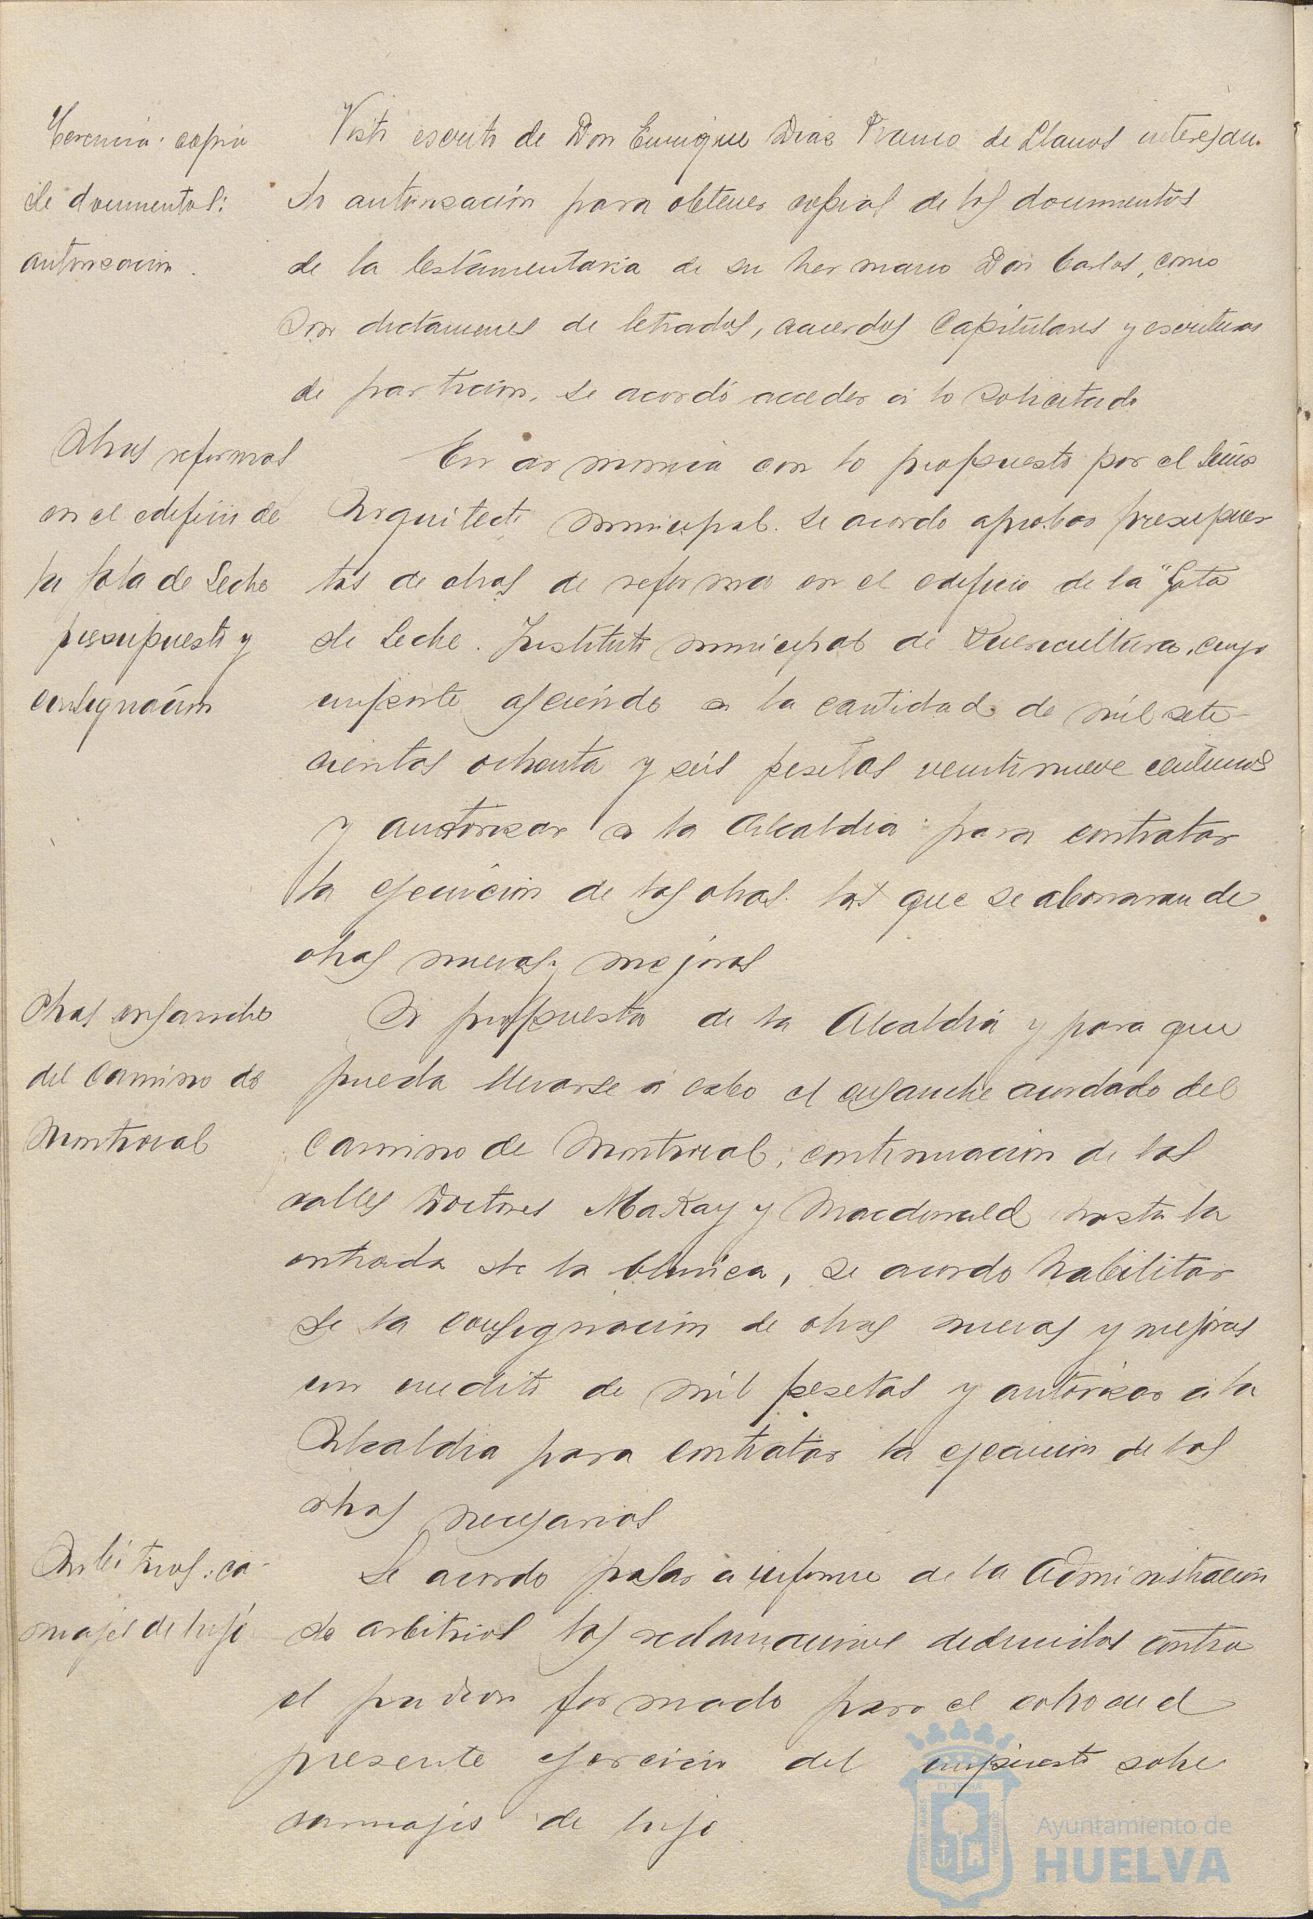 Herencia: copia
de documentos:
autorización.
Visto escrito de Don Enrique Díaz Franco de Llanos interesan-
do autorización para obtener copias de los documentos
de la testamentaria de su hermano Don Carlos, como
son dictamenes de letrados, acuerdos Capitulares y escrituras
de partición, se acordó acceder a lo solicitado
Obras reformas
en el edificio de
la Gota de Leche
presupuesto y
consignación
En armonia con lo propuesto por el Señor
Arquitecto municipal. se acordo aprobar presupues-
tos de obras de reforma en el edificio de la "Gota
de Leche. Instituto municipal de Puericultura, cuyo
importe asciende a la cantidad de mil sete-
cientas ochenta y seis pesetas veintinueve centimos
y autorizar a la Alcaldia para contratar
la ejecución de las obras. las que se abonaran de
obras nuevas y mejoras
Obras ensanche
del Camino de
Montrocal
A propuesta de la Alcaldia y para que
pueda llevarse a cabo el ensanche acordado del
Camino de Montrocal, continuacion de las
calles Doctores MaKay y Macdonald hasta la
entrada de la Clinica, se acordo habilitar
de la Consignación de obras nuevas y mejoras
un credito de mil pesetas y autorizar a la
Alcaldia para contratar la ejecucion de las
obras necesarias
Arbitrios: ca-
rruajes de lujo
Se acordo pasar a informe de la Administracion
de arbitrios las reclamaciones deducidas contra
el padron formado para el cobro en el
presente ejercicio del impuesto sobre
carruajes de lujo
Ayuntamiento de
HUELVA